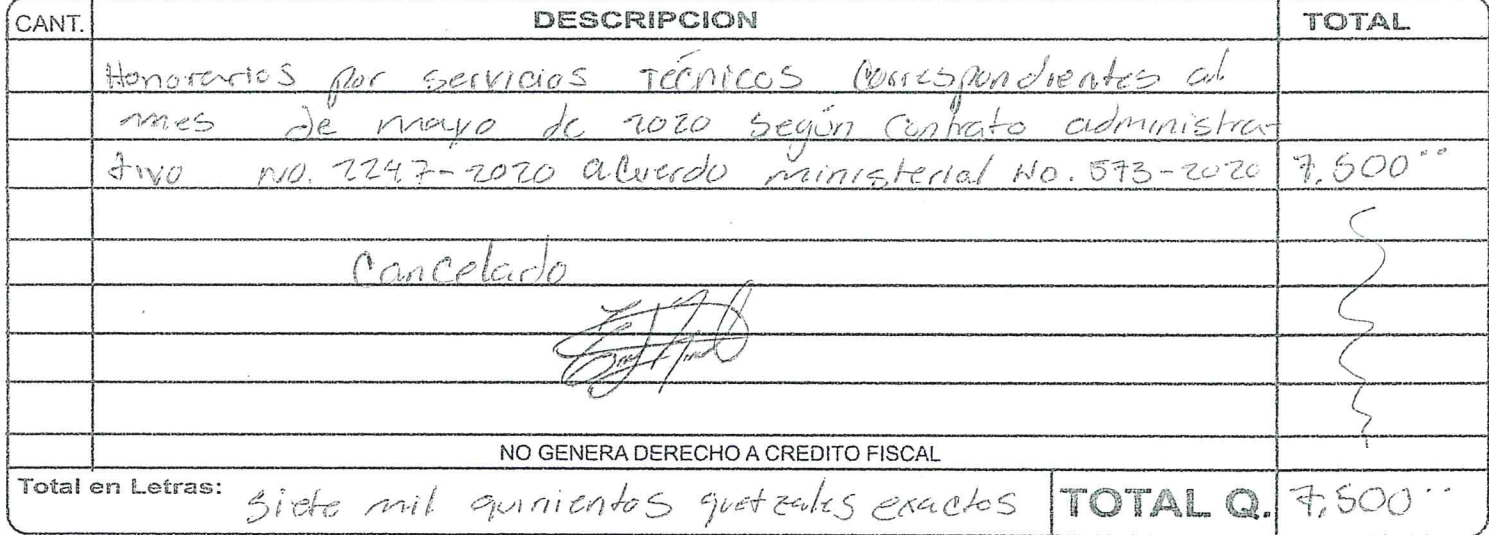 CANT. DESCRIPCION TOTAL
Honorarios por servicios Técnicos Correspondientes al
mes de mayo de 2020 Según Contrato administra-
tivo no. 2247-2020 acuerdo ministerial No. 573-2020 7,500.00
Cancelado
NO GENERA DERECHO A CREDITO FISCAL
Total en Letras: Siete mil quinientos quetzales exactos TOTAL Q. 7,500.00